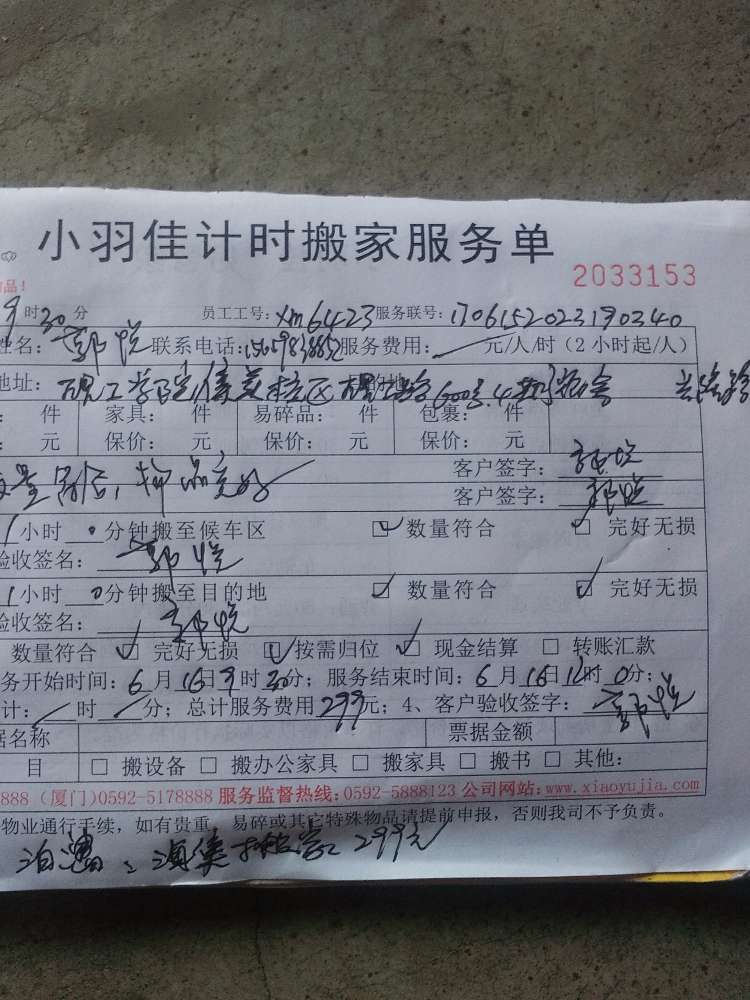 小羽佳计时搬家服务单
2033153
物品!
9时30分 员工工号:xm6423服务联号:1706152023190340
姓名:郭悦联系电话: 服务费用: 元/人/时(2小时起/人)
地址: 理工学院 校区 600号.4 宿舍
: 件 家具: 件 易碎品: 件 包裹: 件
: 元 保价: 元 保价: 元 保价: 元
物品完好 客户签字:郭悦
客户签字:郭悦
1小时0分钟搬至候车区 ☑数量符合 ☑完好无损
验收签名:郭悦
1小时0分钟搬至目的地 ☑数量符合 ☑完好无损
验收签名:郭悦
数量符合 ☑完好无损 ☑按需归位 ☑现金结算 □转账汇款
务开始时间:6月16日9时30分;服务结束时间:6月16日12时0分;
计: 时 分;总计服务费用299元;4、客户验收签字:郭悦
据名称 票据金额
目 □搬设备 □搬办公家具 □搬家具 □搬书 □其他:
888(厦门)0592-5178888 服务监督热线:0592-5888123 公司网站:www.xiaoyujia.com
物业通行手续,如有贵重、易碎或其它特殊物品请提前申报,否则我司不予负责。
299元